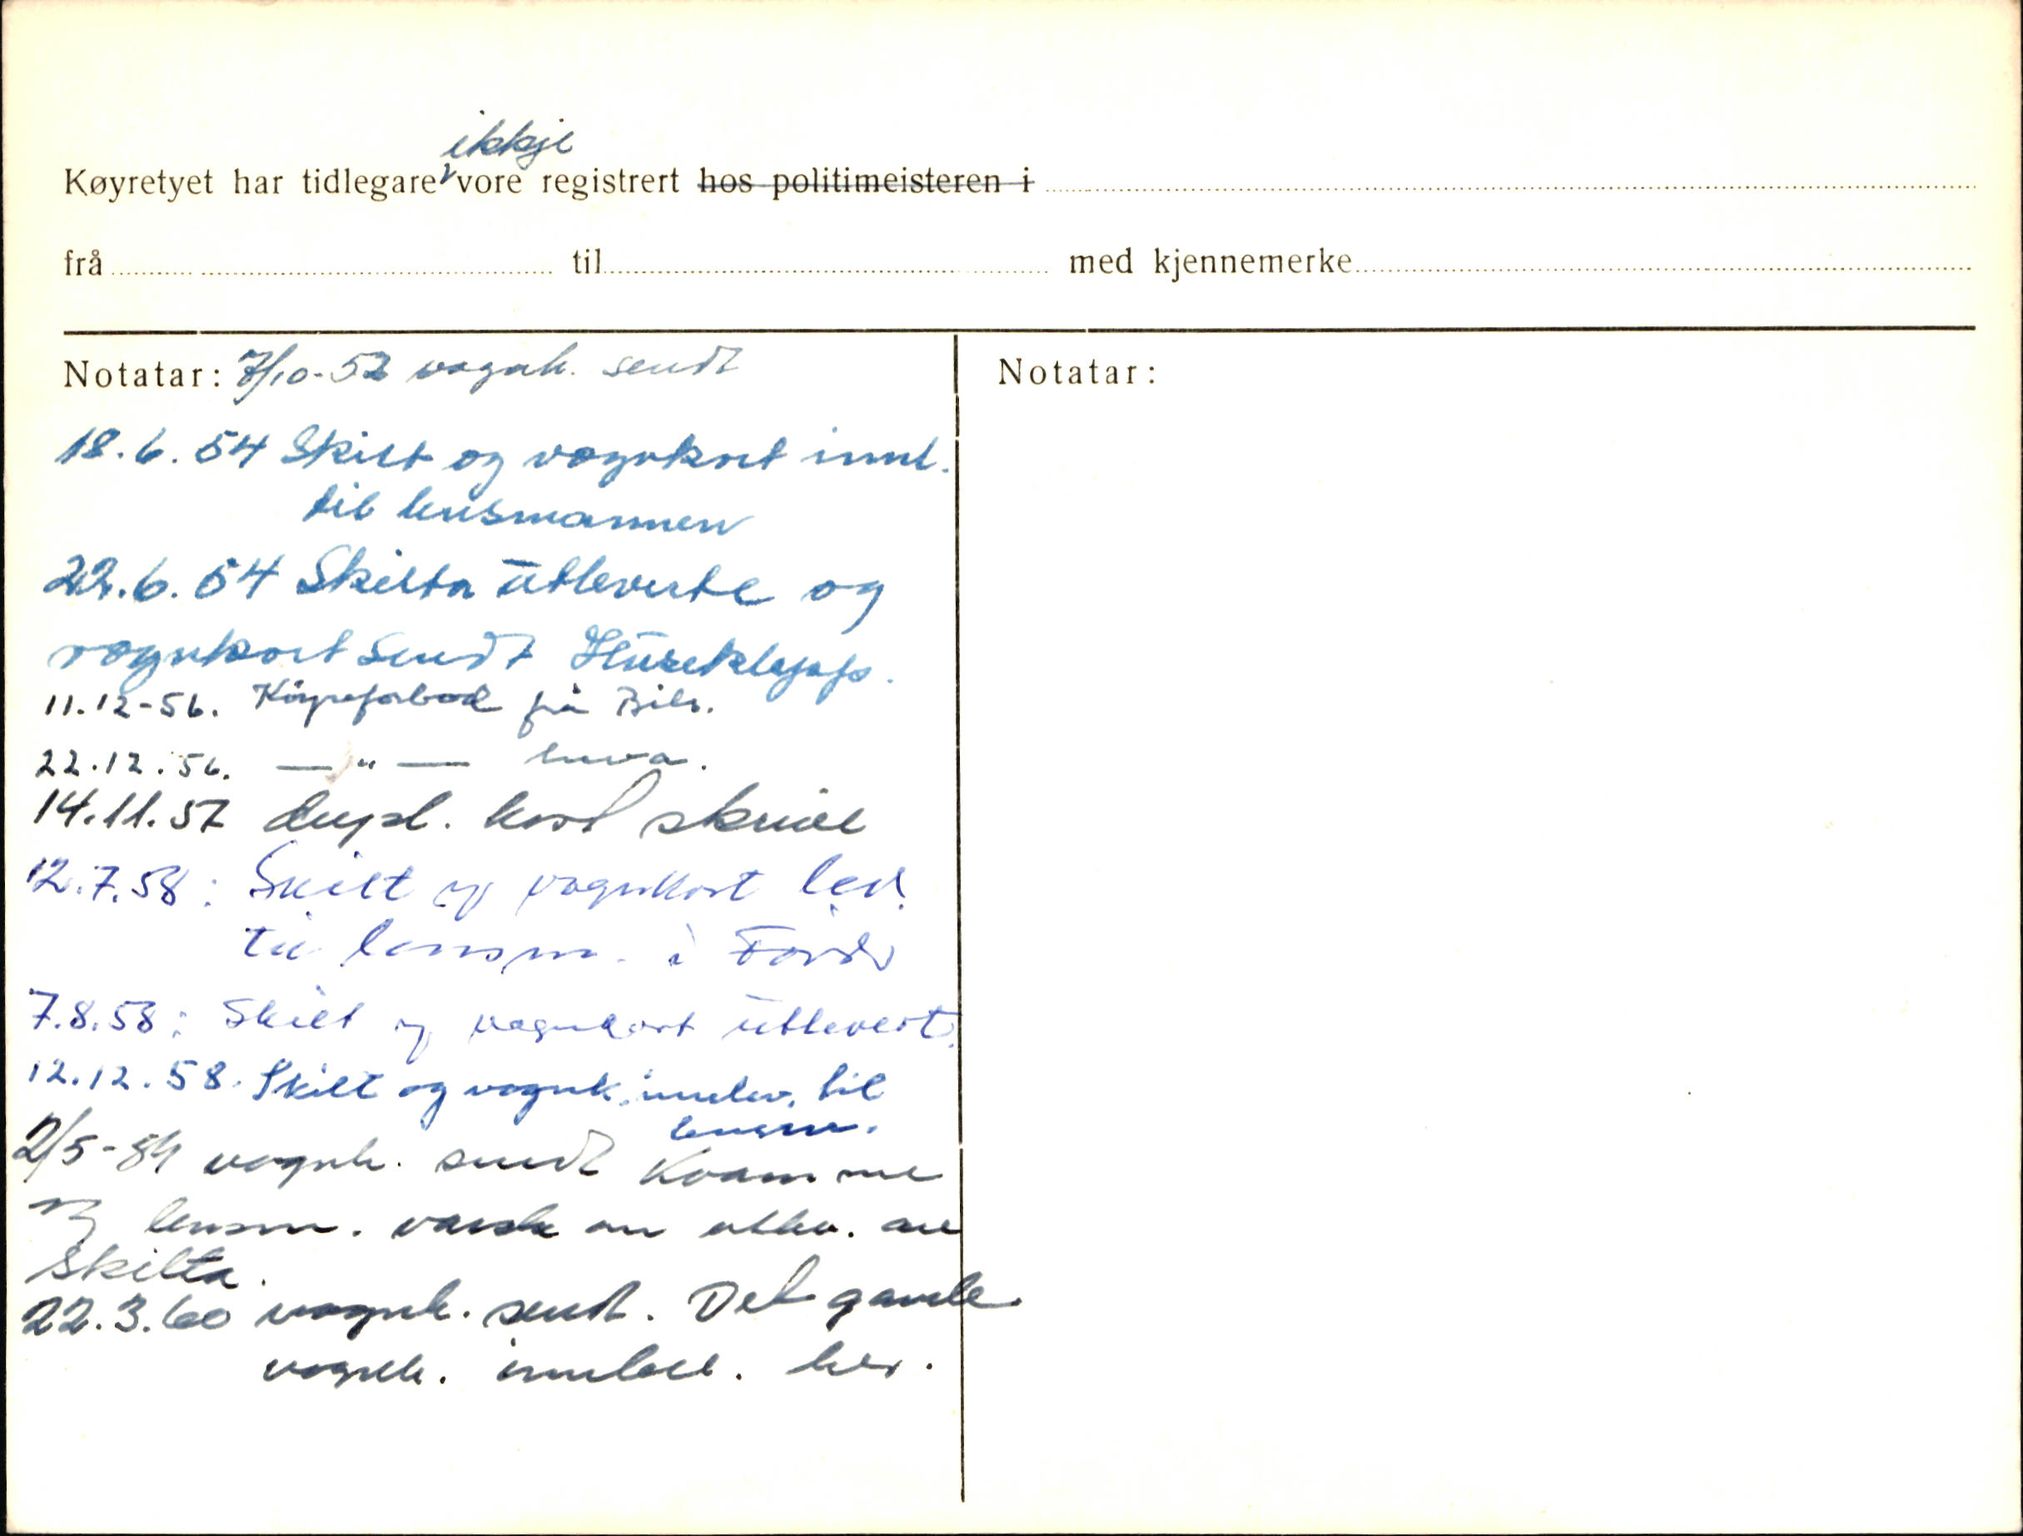 ikkje
Køyretyet har tidlegare vore registrert hos politimeisteren i
frå til med kjennemerke
Notatar: 7/10-52 vognk. sendt
Notatar:
18.6.54 Skilt og vognkort innl.
til lensmannen
22.6.54 Skilta utleverte og
vognkort sendt
11.12-56. Køyreforbod frå Bils.
22.12.56. — " — heva.
14.11.57 dupl. kort skrive
12.7.58: Skilt og vognkort lev.
til lensm. i Førde
7.8.58: Skilt og vognkort utlevert.
12.12.58. Skilt og vognk. innlev. til
lensm.
2/5-59 vognk. sendt Kvamme
og lensm. varsla om utlev. av
skilta.
22.3.60 vognk. sendt. Det gamle
vognk. innlev. her.